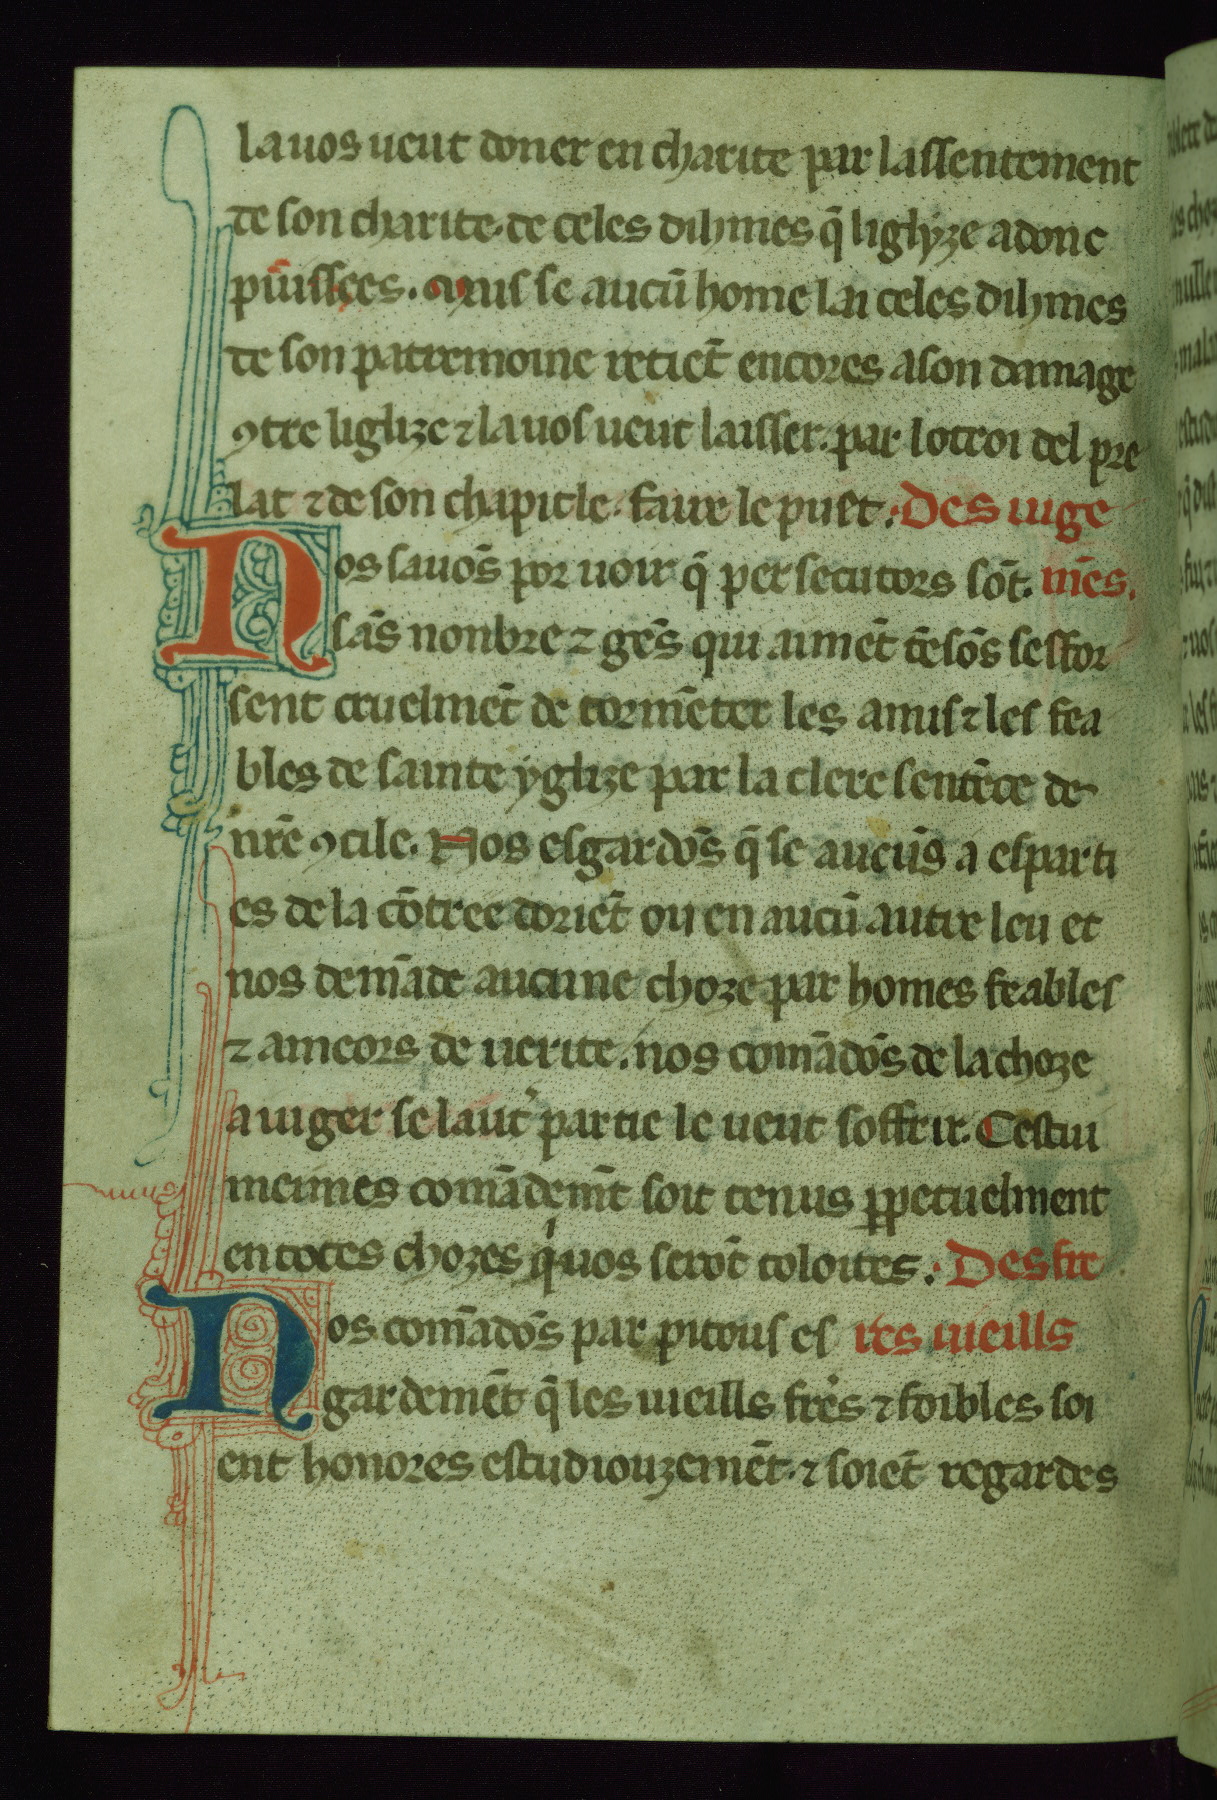 la uos ueut doner en charite par lassentement
de son charite. de celes dihmes q̄ liglyze adonc
puissees. mais se aucū home lai celes dihmes
de son patremoine retiēt encores a son damage
ꝯtre liglize ⁊ la uos ueut laisser. par lotroi del pre
lat ⁊ de son chapitle. faire le puet. Des iuge
Nos sauōs por uoir q̄ persecutors sōt. mēs.
sās nonbre ⁊ gēs qui aimēt tēsōs sesfor
sent cruelmēt de tormēter les amis ⁊ les fea
bles de sainte yglize par la clere sentēce de
nrē ꝯcile. Nos esgardōs q̄ se aucūs a es parti
es de la cōtree doriēt ou en aucū autre leu et
nos demāde aucune choze par homes feables
⁊ ameors de uerite. nos comādōs de la choze
a iuger se laut' partie le ueut soffrir. Cestui
meimes comādemēt soit tenus ꝑpetuelment
en totes chozes q' uos serōt toloites. Des fre
Nos comādōs par pitous es res uieills
gardemēt q̄ les uieills frēs ⁊ foibles soi
ent honores estudiouzemēt. ⁊ soiēt regardes